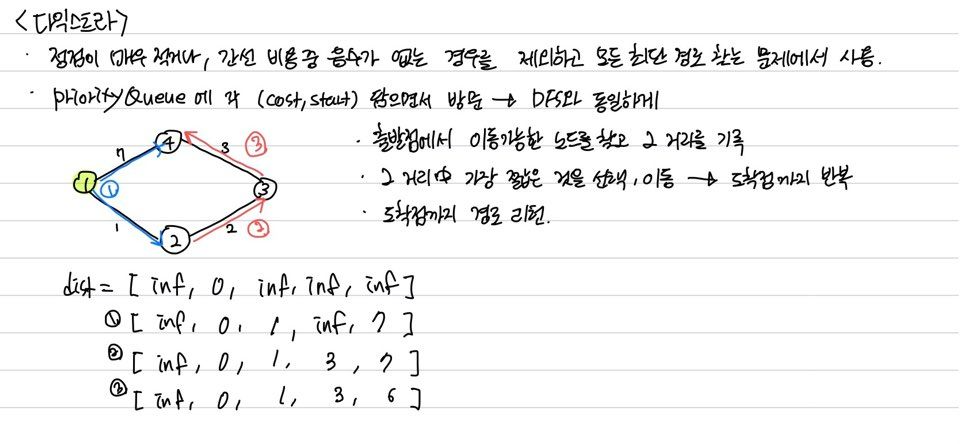 <다익스트라>
· 정점이 매우 적거나, 간선 비용 중 음수가 없는 경우를 제외하고 모든 최단 경로 찾는 문제에서 사용.
· priority Queue 에 각 (cost, start) 담으면서 방문 → DFS와 동일하게
· 출발점에서 이동가능한 노드를 찾고 그 거리를 기록
· 그 거리 中 가장 짧은 것을 선택, 이동 → 도착점까지 반복
· 도착점까지 경로 리턴.
7 4 3 ③
1 ① 3
1 2 2 ②
dist = [ inf, 0, inf, inf, inf ]
① [ inf, 0, 1, inf, 7 ]
② [ inf, 0, 1, 3, 7 ]
③ [ inf, 0, 1, 3, 6 ]